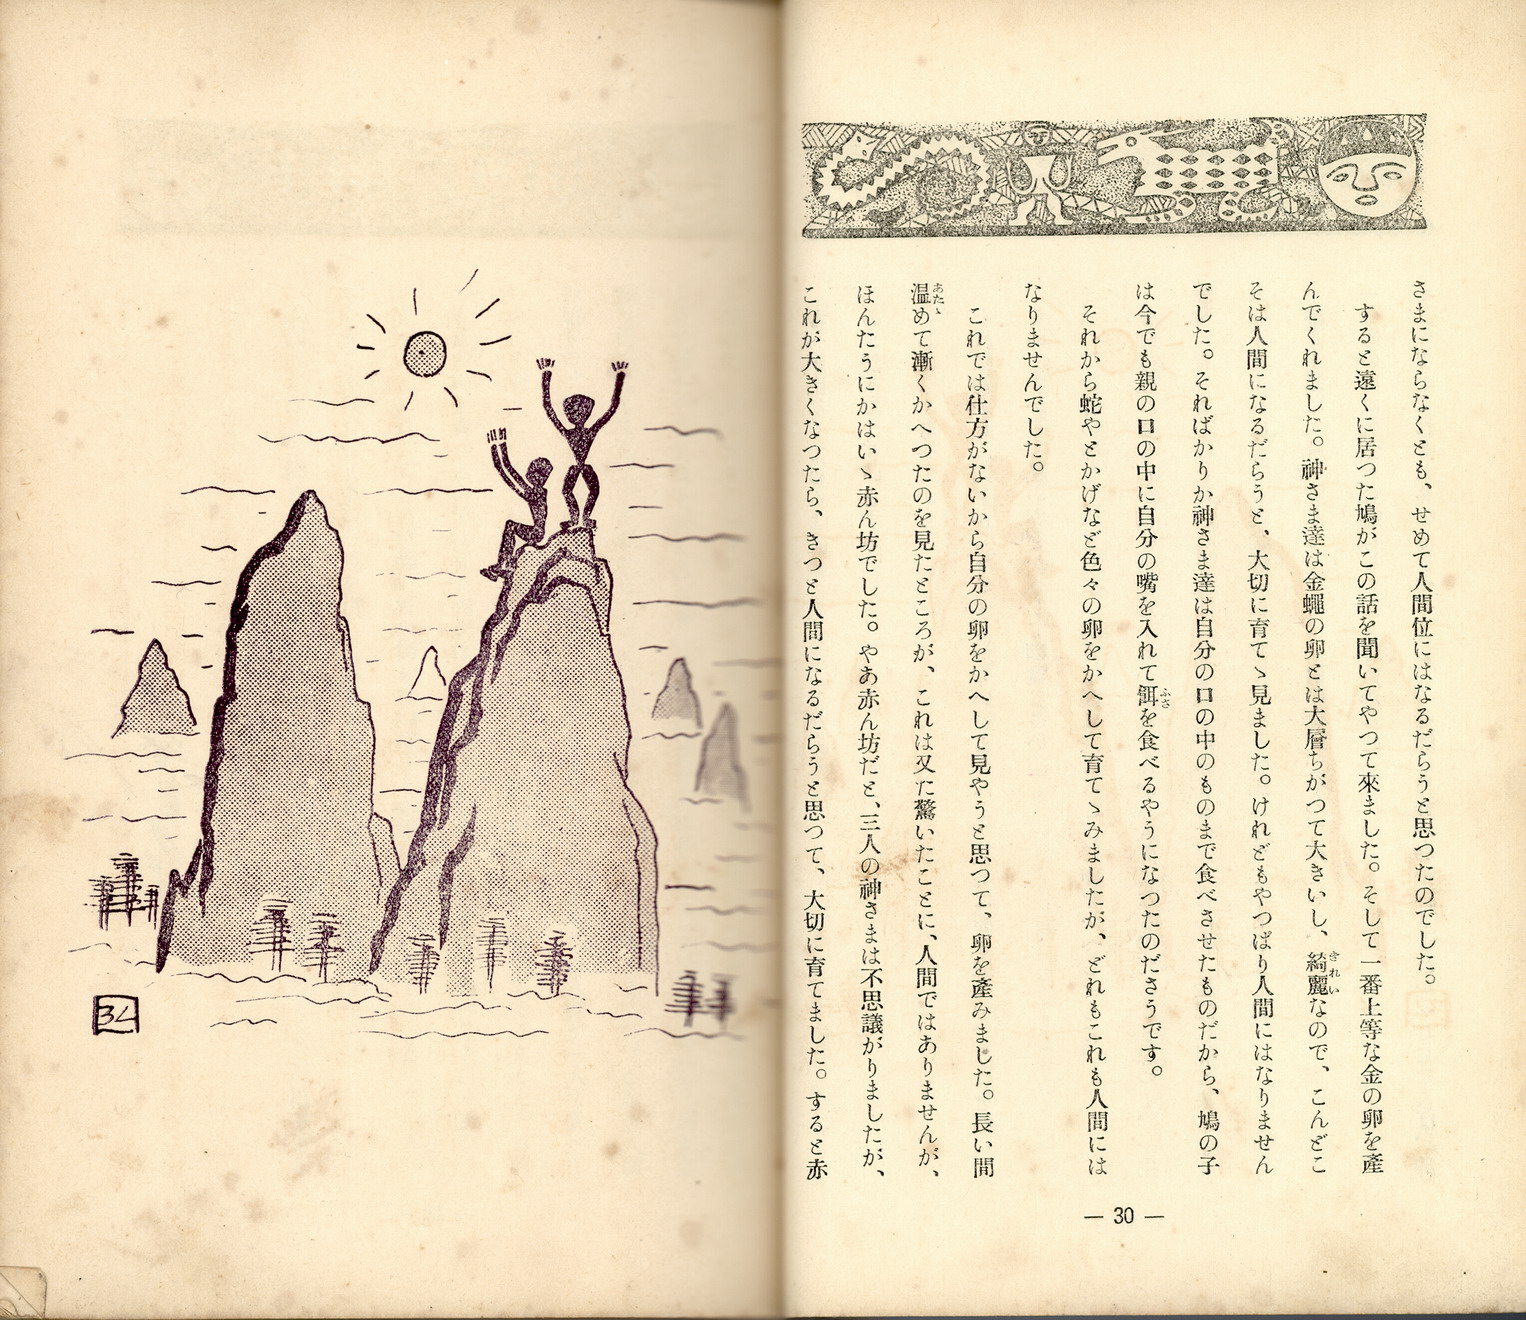 さまにならなくとも、せめて人間位にはなるだらうと思つたのでした。
すると遠くに居つた鳩がこの話を聞いてやつて來ました。そして一番上等な金の卵を產
んでくれました。神さま達は金蠅の卵とは大層ちがつて大きいし、綺麗なので、こんどこ
きれい
そは人間になるだらうと、大切に育てゝ見ました。けれどもやつぱり人間にはなりません
でした。そればかりか神さま達は自分の口の中のものまで食べさせたものだから、鳩の子
は今でも親の口の中に自分の嘴を入れて餌を食べるやうになつたのださうです。
それから蛇やとかげなど色々の卵をかへして育てゝみましたが、どれもこれも人間には
なりませんでした。
これでは仕方がないから自分の卵をかへして見やうと思つて、卵を產みました。長い間
温めて漸くかへつたのを見たところが、これは又た驚いたことに、人間ではありませんが、
あたゝ
ほんたうにかはいゝ赤ん坊でした。やあ赤ん坊だと、三人の神さまは不思議がりましたが、
これが大きくなつたら、きつと人間になるだらうと思つて、大切に育てました。すると赤
— 30 —